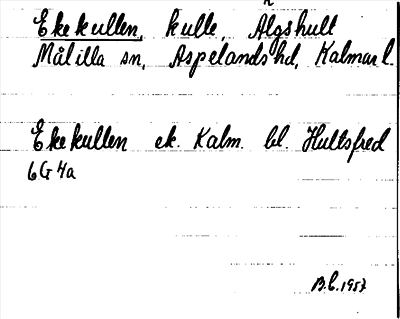 Ekekullen, kulle, Älgshult
Målilla sn, Aspelands hd, Kalmar l.
Ekekullen ek. Kalm. bl. Hultsfred
6G4a
B.C. 1957